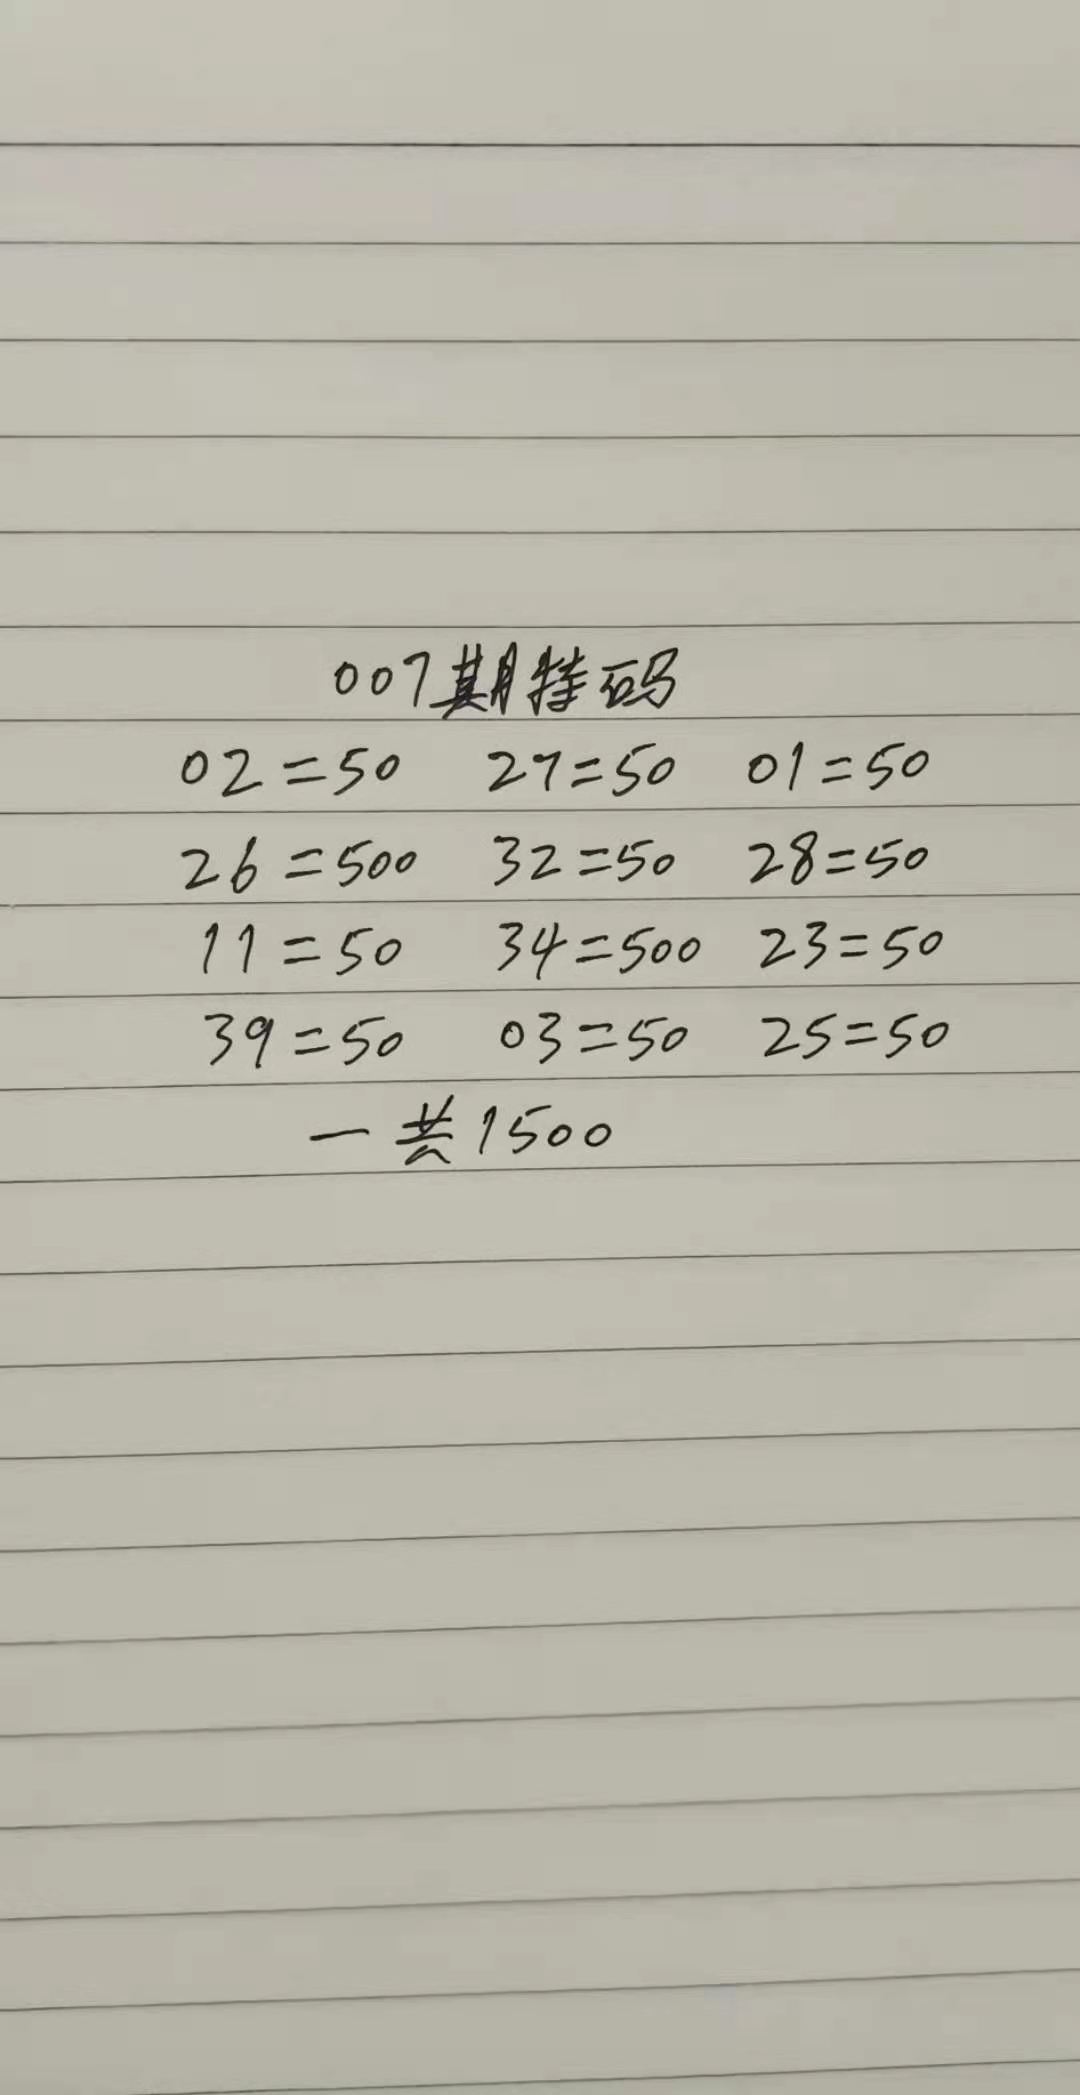 007期特码
02=50 27=50 01=50
26=500 32=50 28=50
11=50 34=500 23=50
39=50 03=50 25=50
一共1500